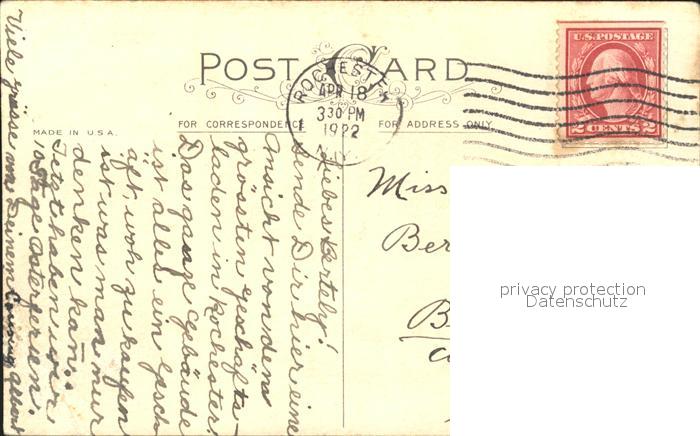 POST CARD
ROCHESTER
APR 18
330 PM
1922
N.Y.
U.S. POSTAGE
2 CENTS 2
MADE IN U.S.A.
FOR CORRESPONDENCE
FOR ADDRESS ONLY
Liebes Bertely!
Sende Dir hier eine
Ansicht von den
grössten Geschäfts-
laden in Rochester.
Das ganze Gebäude
ist alles ein Gesch
äft, wo zu kaufen
ist was man nur
denken kan.
Jetzt haben wir
10 Tage Osterferien.
Viele grüsse von Deinem Cousin Albert
Miss
Ber
B
privacy protection
Datenschutz